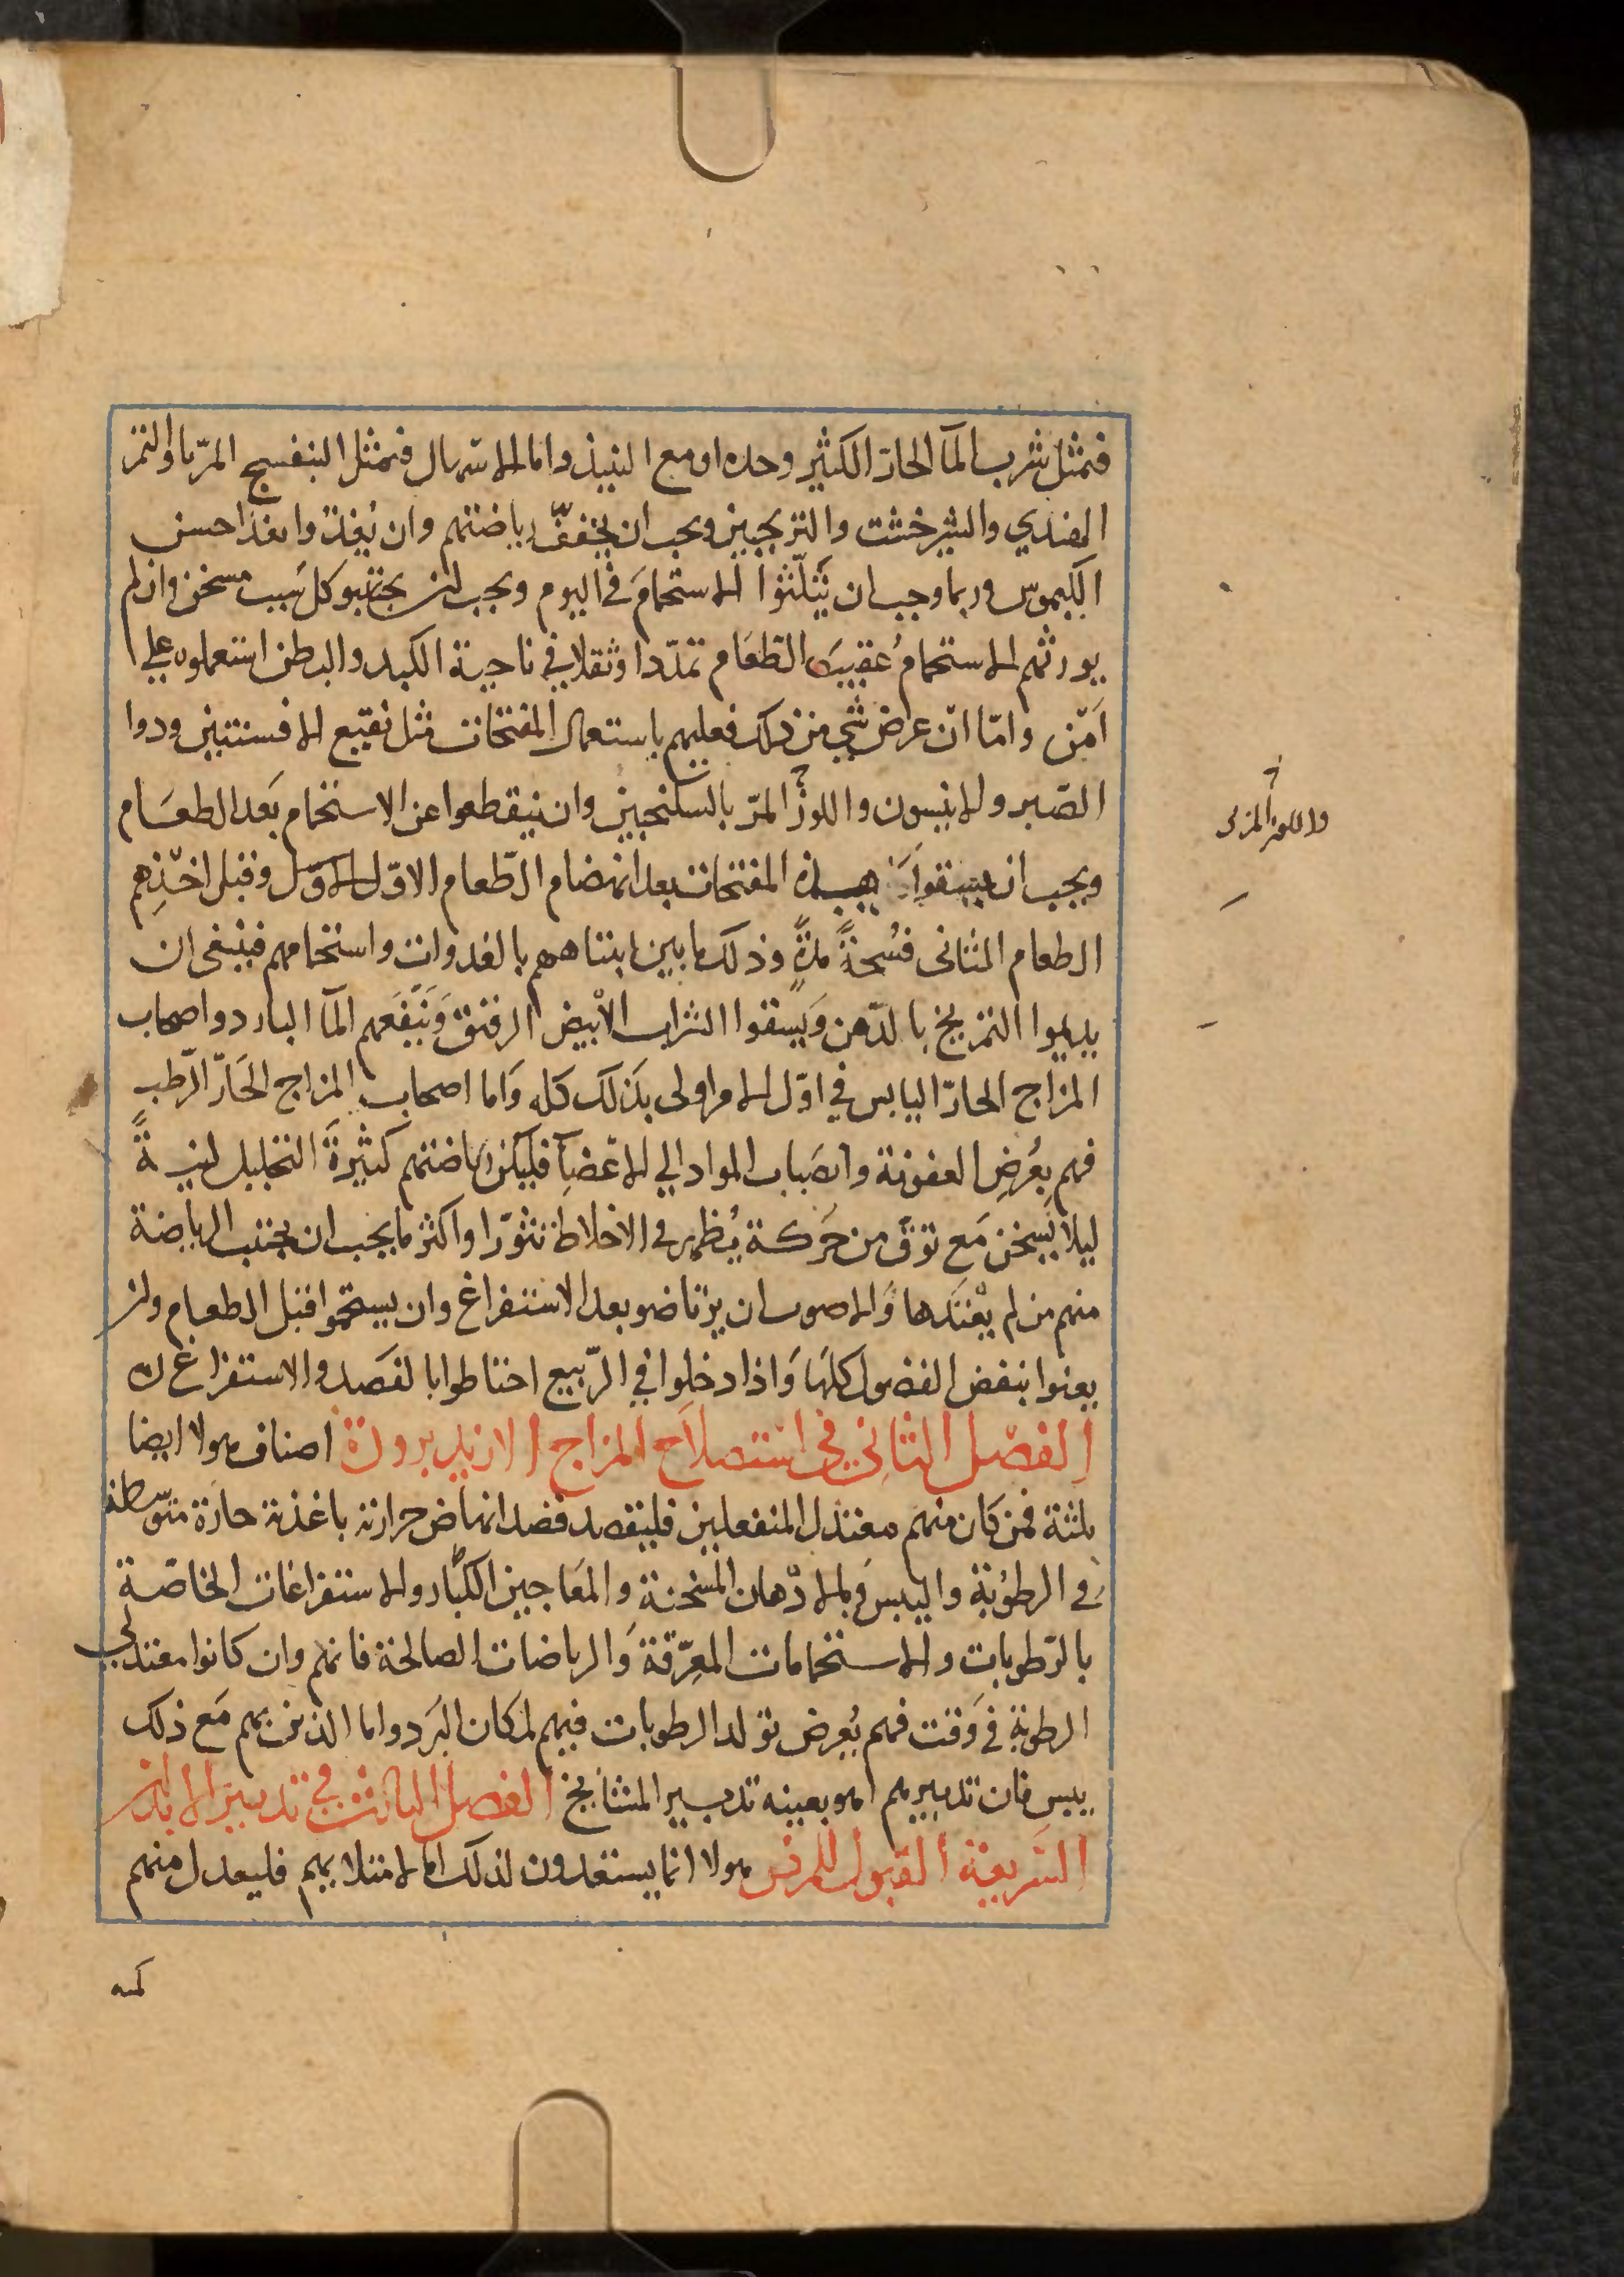 فمثل شرب المآ الحارّ الكثير وحده او مع النبيذ واما الاسهال فمثل البنفسج المرّبا والتمر
الهندي والشيرخشت والترنجبين ويجب ان يخففّ رياضتهم وان يُغذّوا بغذا حسن
الكيموس وربما وجب ان يَثلّثوا الاستحمامَ في اليوم ويجب ان يجتنبو كل سَبب مسخن وان لم
يورثهم الاستحمامُ عقيبَ الطعَام تمدّدا وثقلا في ناحية الكبد والبطن استعملوه على
اَمْن وامّا انّ عرض شي من ذلك فعليهم باستعمال المفتحات مثل نقيع الافسنتين ودوا
الصّبر والانيسون واللوز المرّ بالسكنجبين وان ينقطعوا عن الاستحمام بَعد الطعَام
واللوز المر
ويجب ان يسقوا هذه المفتحات بعد انهضام الطّعام الاوّل الاوّل وقبل اخْذِهم
الطعام الثانى فسُحةً مدّةً وذلك ما بين انتباههم بالغدوات واستحمامهم فينبغى ان
يديموا التمريخ بالدّهن وَيسقوا الشراب الاْبيض الرقيق وَيَنفَعهم المآ البارد واصحاب
المزاج الحارّ اليابس في اوّل الامر اولى بذلك كله وَاما اصحاب المزاج الحَارّ الرّطب
فهم بعُرضِ العفونة وانصَباب المواد الي الاعْضآ فليكن رياضتهم كثيرةَ التحليل لينـةً
ليلا يَسخن مَع توقّ من حَركة يُظهر في الاخلاط تثوّرا واكثر ما يجب ان يجتنب الرياضة
منهم من لم يعْتَدها وَالاصوب ان يرتاضو بعد الاستفراغ وان يستحموا قبل الطعام وان
يعنوا بنفض الفضول كلهَا وَاذا دخلوا في الرّبيع احتاطوا بالفَصد والاستفراغ
الفصْل الثانِى في استصلاَح المزاج الازيد برودة اصناف هولا ايضا
ثلثة فمن كان منهم معتدل المنفعلين فليقصد قصد انهاض حرارته باغذية حارّة متوسّطة
في الرطوُبة واليبس وَبالادْهان المسْخنة والمعَاجين الكبّار والاستفراغات الخاصّة
بالرّطوبات والاستحمامات المعِرّقة وَالرياضات الصالحة فانهم وان كانوا معتدلي
الرطوبة في وَقت فهم بُعرض تولد الرطوبات فيهم لمكان البَرد واما الذين بهم مَع ذلك
يبس فان تدبيرهم هو بعينه تدبير المشايخ الفصل الثالث في تدبيرَ الابدان
السّريعة القبول للمرض هولا انما يستعدون لذلك اما لامتلا بهم فليعدل منهم
كمية